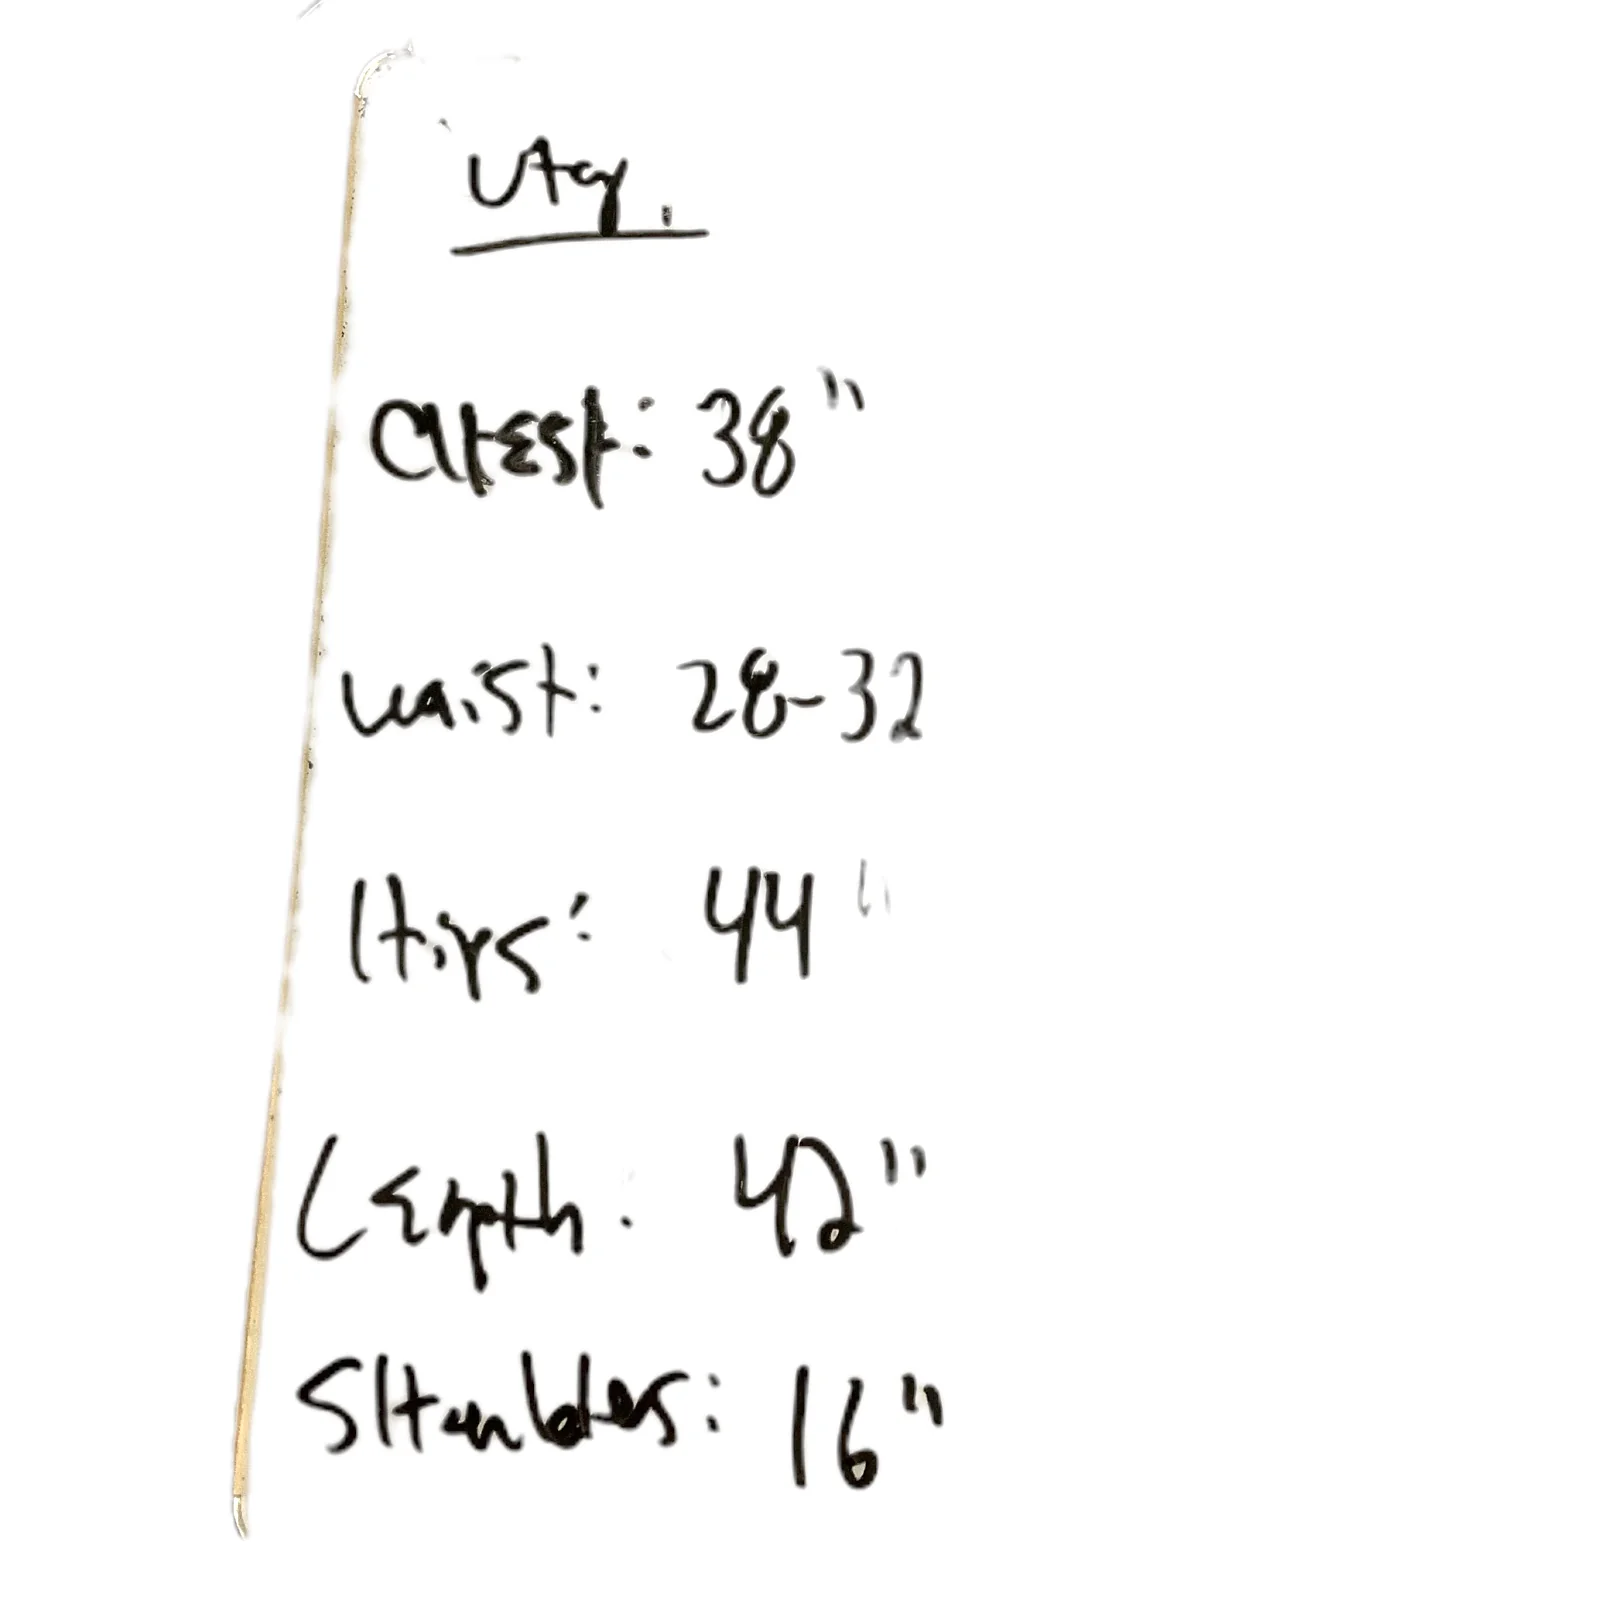 Vtg.
CHEST: 38"
waist: 28-32
Hips: 44"
Length: 42"
SHoulders: 16"